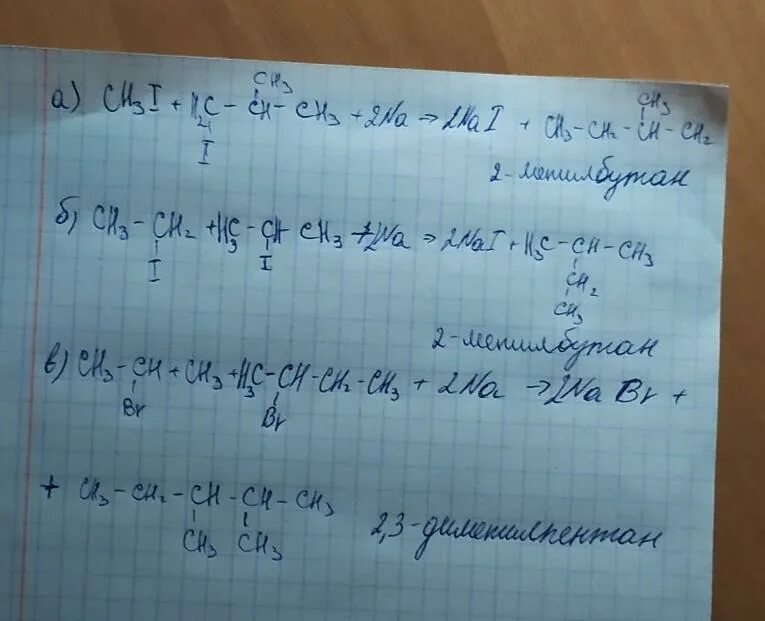 CH₃
CH₃
а) CH₃I + H₂C – CH – CH₃ + 2Na → 2NaI + CH₃–CH₂–CH–CH₂
I
2-метилбутан
б) CH₃ – CH₂ + H₃C – CH CH₃ + 2Na → 2NaI + H₃C – CH – CH₃
I
I
CH₂
CH₃
2-метилбутан
в) CH₃ – CH + CH₃ + H₃C – CH – CH₂ – CH₃ + 2Na → 2NaBr +
Br
Br
+ CH₃ – CH₂ – CH – CH – CH₃
CH₃ CH₃
2,3-диметилпентан